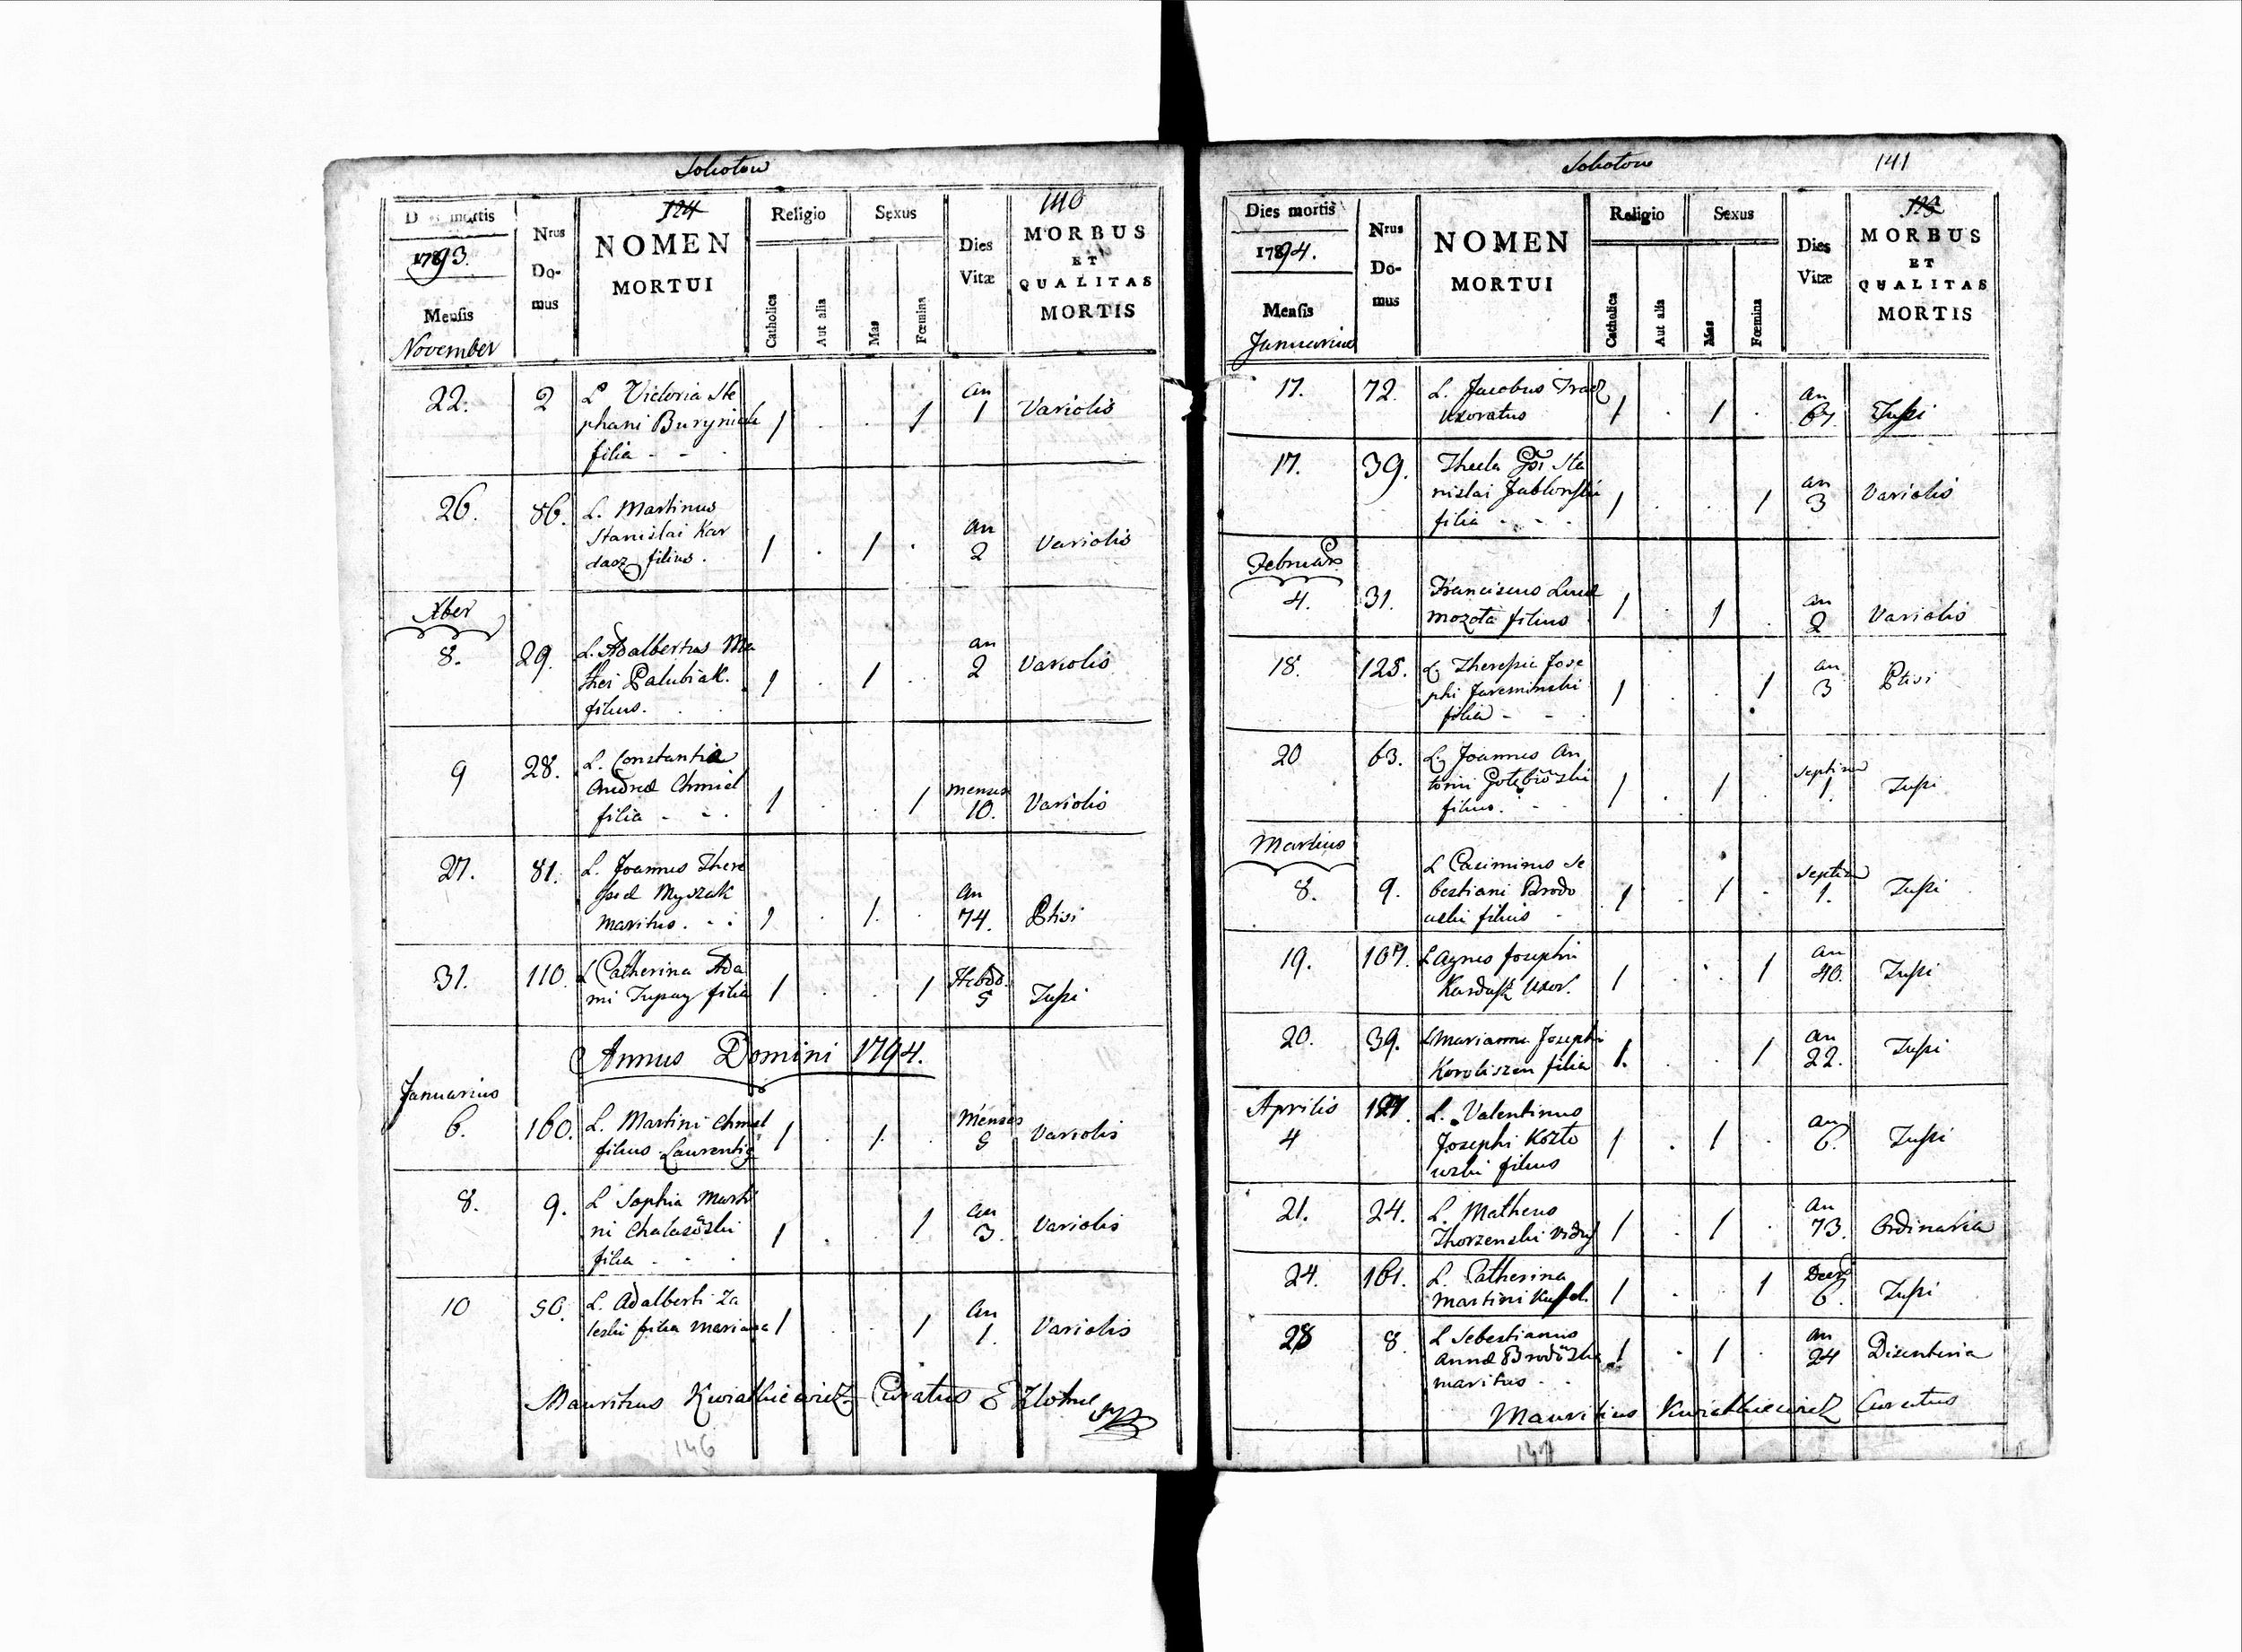 Solotow
Dies mortis
1793.
Mensis
November
Nrus
Do-
mus
124
NOMEN
MORTUI
Religio
Catholica
Aut alia
Sexus
Mas
Fœmina
Dies
Vitæ
140
MORBUS
ET
QUALITAS
MORTIS
22. 2 L Victoria Ste an
phani Buryniak 1 . . 1 1 Variolis
filia - -
26. 86. L. Martinus
Stanislai Kar an
dasz filius. 1 . 1 . 2 Variolis
Xber
8. 29. L. Adalbertus Ma an
thei Palubiak. 1 . 1 . 2 Variolis
filius.
9 28. L. Constantia
Andreæ Chmiel menses
filia - - 1 . . 1 10. Variolis
27. 81. L. Joannes There
siæ Myszak an
maritus. 1 . 1. . 74. Ptisi
31. 110. L Catherina Ada Hebdo.
mi filia 1 . . 1 5 Tussi
Annus Domini 1794.
Januarius
6. 160. L. Martini Chmiel Menses
filius Laurentig 1 . 1. . 5 Variolis
8. 9. L Sophia Marti
ni an
filia 1 . . 1 3. Variolis
10 50. L. Adalberti Za an
leski filia Marianna 1 . . 1 1. Variolis
Mauritius Kwiatkiewicz Curatus
146
Solotow
141
Dies mortis
1794.
Mensis
Januarius
Nrus
Do-
mus
NOMEN
MORTUI
Religio
Catholica
Aut alia
Sexus
Mas
Fœmina
Dies
Vitæ
MORBUS
ET
QUALITAS
MORTIS
17. 72. L. Jacobus an
Uxoratus 1 . 1 . 67. Tussi
17. 39. Thecla Sta
nislai Jablonski an
filia - - 1 . . 1 3 Variolis
Februar
4. 31. Franciscus an
filius 1 . 1 . 2 Variolis
18. 125. L. Theresia Jose an
phi Jareminski 1 . . 1 3 Ptisi
filia - -
20 63. L. Joannes An Septima
tonii Gołębiowski 1 . 1 . 1. Tussi
filius.
Martius
L Casimirus Se Septima
8. 9. bestiani Brodo 1 . 1 . 1. Tussi
wski filius
19. 107. L Agnes Josephi an
Kardasz Uxor. 1 . . 1 40. Tussi
20. 39. L Marianna Josephi an
filia 1. . . 1 22. Tussi
Aprilis L. Valentinus an
4 Josephi Kozło 1 . 1 . 6. Tussi
wski filius
21. 24. L. Matheus an
Thorzenski 1 . 1 . 73. Ordinaria
24. 161. L. Catherina
Martini 1 . . 1 6. Tussi
28 8. L Sebestianus an
Annæ 1 . 1 . 24 Disenteria
maritus -
Mauritius Kwiatkiewicz Curatus
147